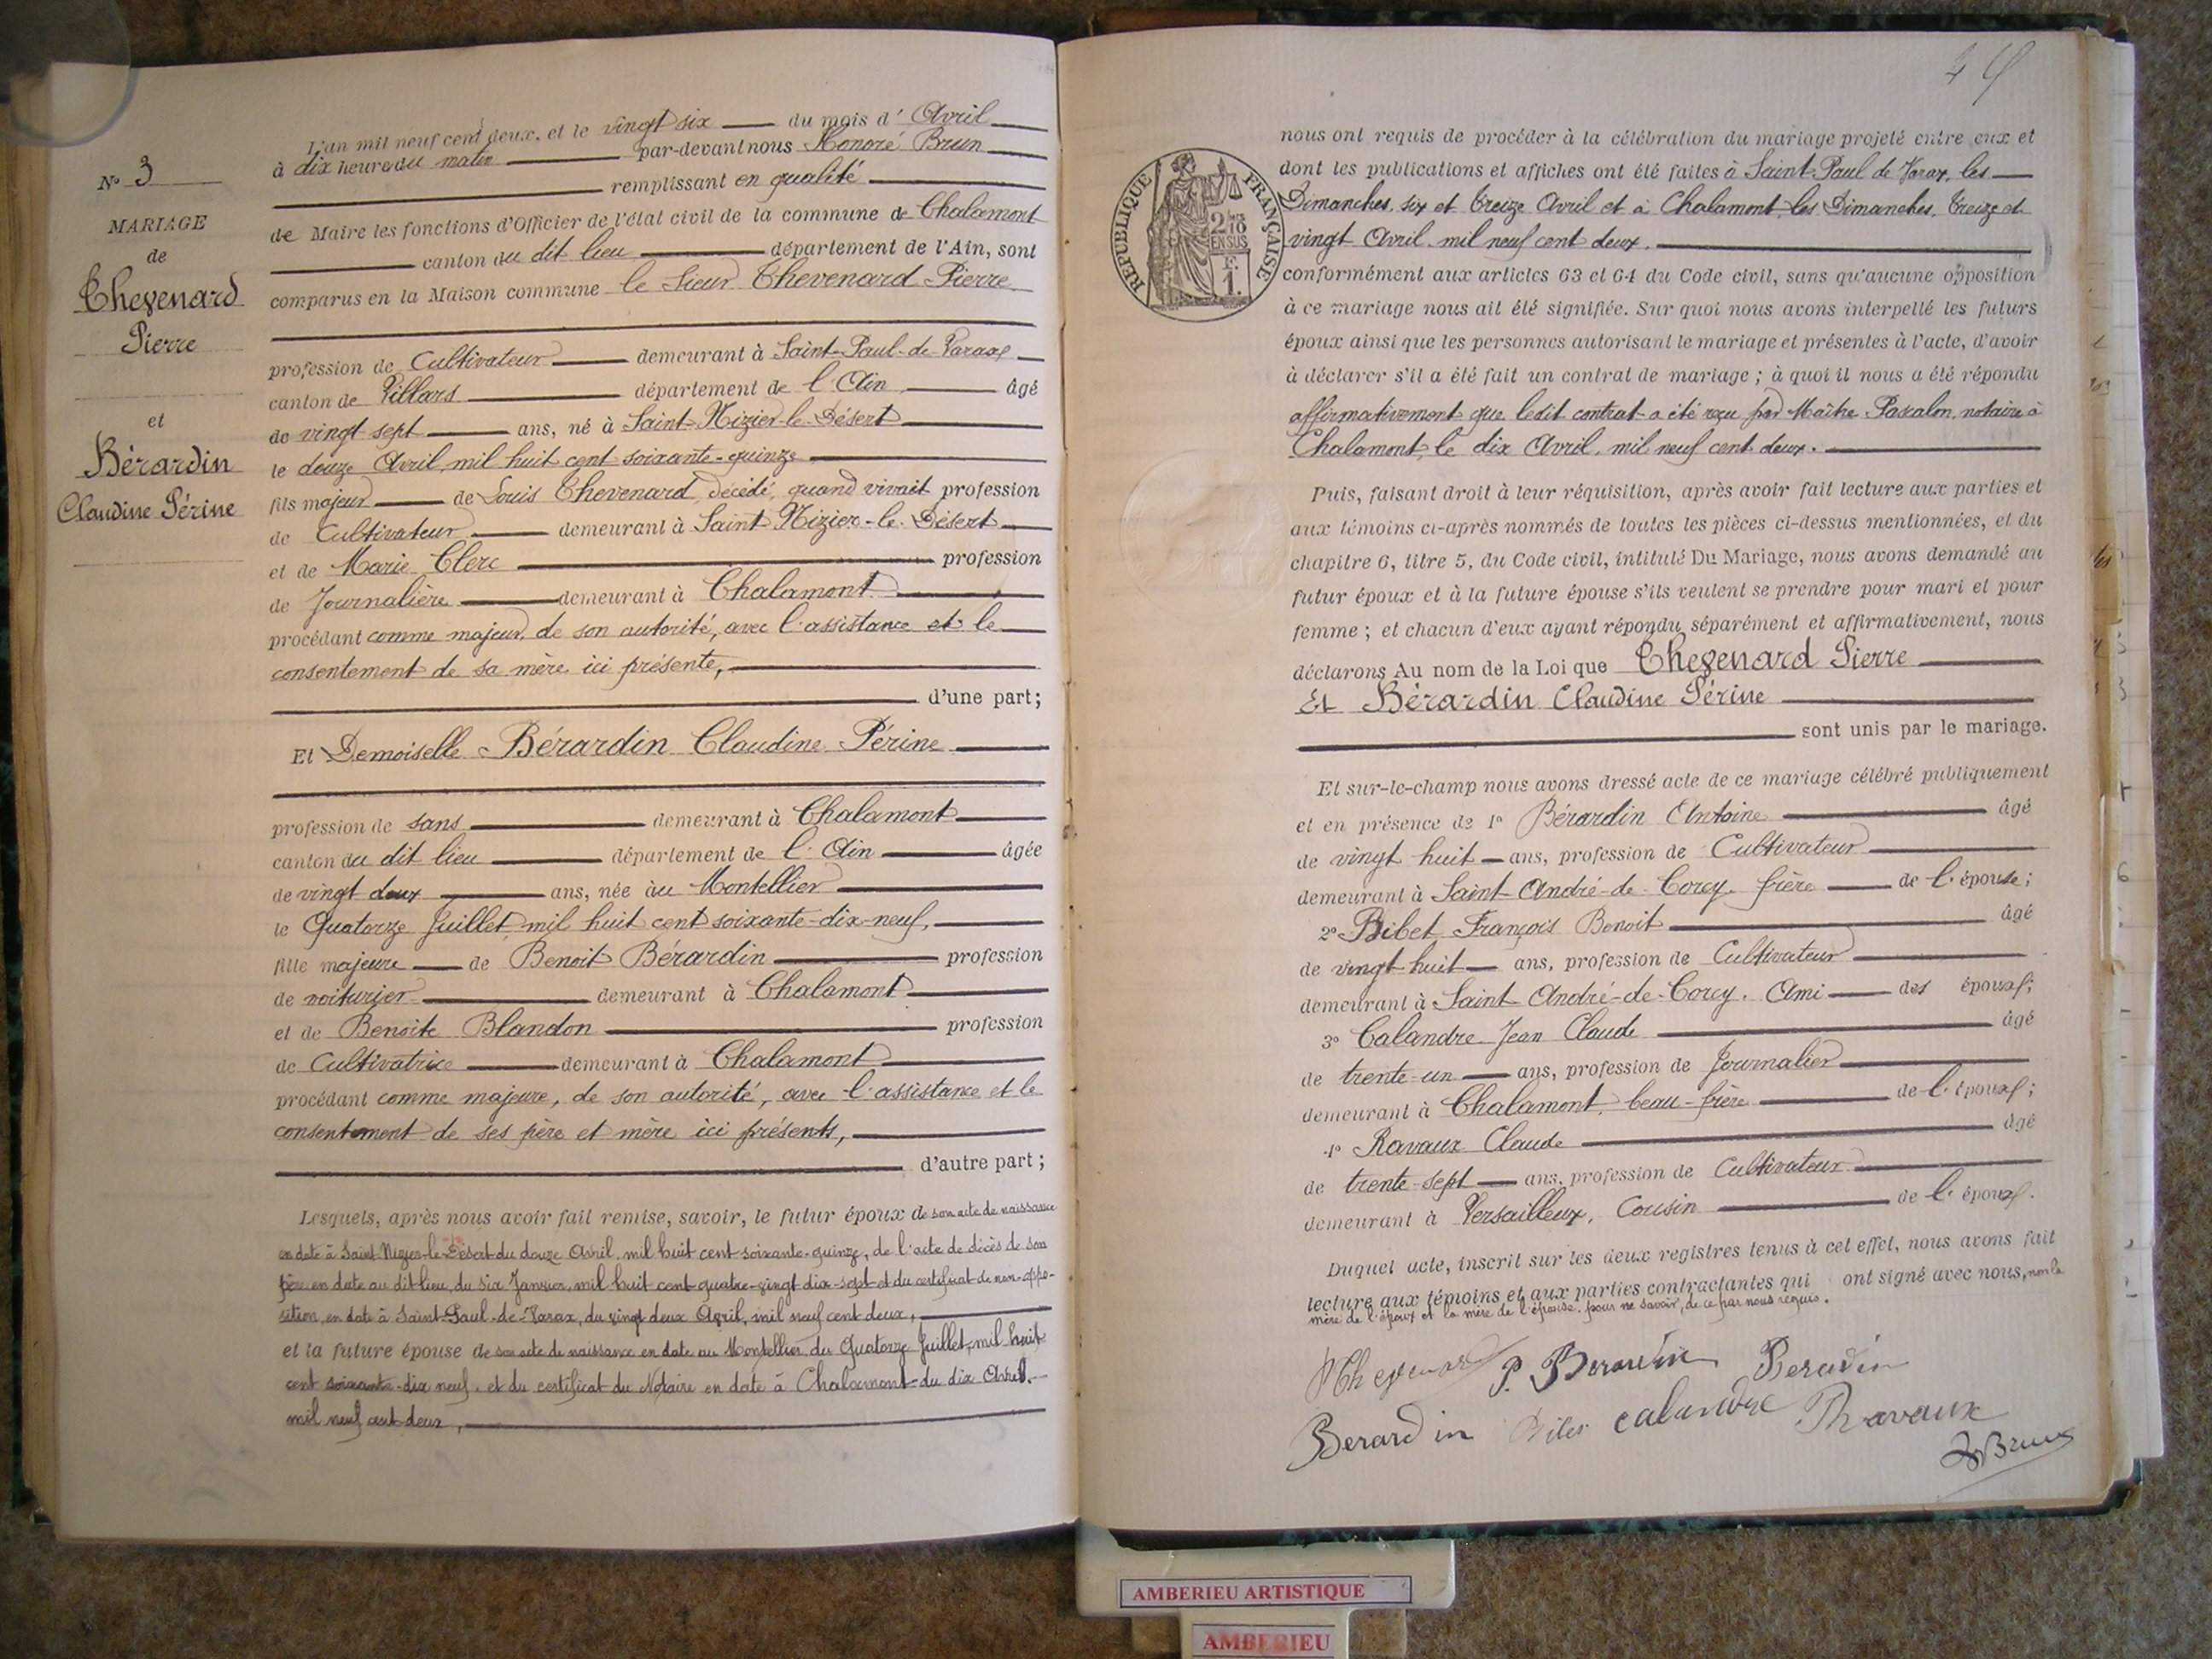 N° 3
MARIAGE
de
Thevenard
Pierre
et
Bérardin
Claudine Périne
L'an mil neuf cent deux, et le vingt six du mois d' Avril
à dix heure du matin par-devant nous Honoré Brun
remplissant en qualité
de Maire les fonctions d'Officier de l'état civil de la commune de Chalamont
canton du dit lieu département de l'Ain, sont
comparus en la Maison commune le Sieur Thevenard Pierre
profession de Cultivateur demeurant à Saint-Paul-de-Varax
canton de Villars département de l'Ain âgé
de vingt sept ans, né à Saint-Nizier-le-Désert
le douze Avril mil huit cent soixante-quinze
fils majeur de Louis Thevenard, décédé, quand vivait profession
de Cultivateur demeurant à Saint Nizier-le-Désert
et de Marie Clerc profession
de Journalière demeurant à Chalamont
procédant comme majeur, de son autorité, avec l'assistance et le
consentement de sa mère ici présente,
d'une part;
Et Demoiselle Bérardin Claudine Périne
profession de sans demeurant à Chalamont
canton du dit lieu département de l'Ain âgée
de vingt deux ans, née àu Montellier
le Quatorze Juillet mil huit cent soixante-dix-neuf,
fille majeure de Benoit Bérardin profession
de voiturier demeurant à Chalamont
et de Benoite Blandon profession
de Cultivatrice demeurant à Chalamont
procédant comme majeure, de son autorité, avec l'assistance et le
consentement de ses père et mère ici présents,
d'autre part;
Lesquels, après nous avoir fait remise, savoir, le futur époux de son acte de naissance
en date à Saint Nizier-le-Désert du douze Avril, mil huit cent soixante-quinze, de l'acte de décès de son
père en date au dit lieu, du six Janvier, mil huit cent quatre-vingt dix-sept et du certificat de non-oppo-
sition, en date à Saint-Paul-de-Varax, du vingt deux Avril, mil neuf cent deux,
et la future épouse de son acte de naissance en date au Montellier du Quatorze Juillet, mil huit
cent soixante-dix neuf, et du certificat du Notaire en date à Chalamont du dix Avril,
mil neuf cent deux,
45
REPUBLIQUE FRANÇAISE
2/10
EN SUS
1.
nous ont requis de procéder à la célébration du mariage projeté entre eux et
dont les publications et affiches ont été faites à Saint-Paul de Varax, les
Dimanches, six et treize Avril et à Chalamont, les Dimanches, treize et
vingt Avril, mil neuf cent deux.
conformément aux articles 63 et 64 du Code civil, sans qu'aucune opposition
à ce mariage nous ait été signifiée. Sur quoi nous avons interpellé les futurs
époux ainsi que les personnes autorisant le mariage et présentes à l'acte, d'avoir
à déclarer s'il a été fait un contrat de mariage; à quoi il nous a été répondu
affirmativement que ledit contrat a été reçu par Maître Pascalon, notaire à
Chalamont, le dix Avril, mil neuf cent deux.
Puis, faisant droit à leur réquisition, après avoir fait lecture aux parties et
aux témoins ci-après nommés de toutes les pièces ci-dessus mentionnées, et du
chapitre 6, titre 5, du Code civil, intitulé Du Mariage, nous avons demandé au
futur époux et à la future épouse s'ils veulent se prendre pour mari et pour
femme; et chacun d'eux ayant répondu séparément et affirmativement, nous
déclarons Au nom de la Loi que Thevenard Pierre
Et Bérardin Claudine Périne
sont unis par le mariage.
Et sur-le-champ nous avons dressé acte de ce mariage célébré publiquement
et en présence de 1° Bérardin Antoine âgé
de vingt huit ans, profession de Cultivateur
demeurant à Saint-André-de-Corcy, frère de l'épouse;
2° Bibet François Benoit âgé
de vingt huit ans, profession de Cultivateur
demeurant à Saint-André-de-Corcy, Ami des époux;
3° Calandre Jean Claude âgé
de trente-un ans, profession de Journalier
demeurant à Chalamont, beau-frère de l'époux;
4° Ravaux Claude âgé
de trente-sept ans, profession de Cultivateur
demeurant à Versailleux, Cousin de l'époux.
Duquel acte, inscrit sur les deux registres tenus à cet effet, nous avons fait
lecture aux témoins et aux parties contractantes qui ont signé avec nous, non la
mère de l'époux et la mère de l'épouse, pour ne savoir, de ce par nous requis.
Thevenard P. Berardin Berardin
Berardin calandre Ravaux
H Brun
AMBERIEU ARTISTIQUE
AMBERIEU